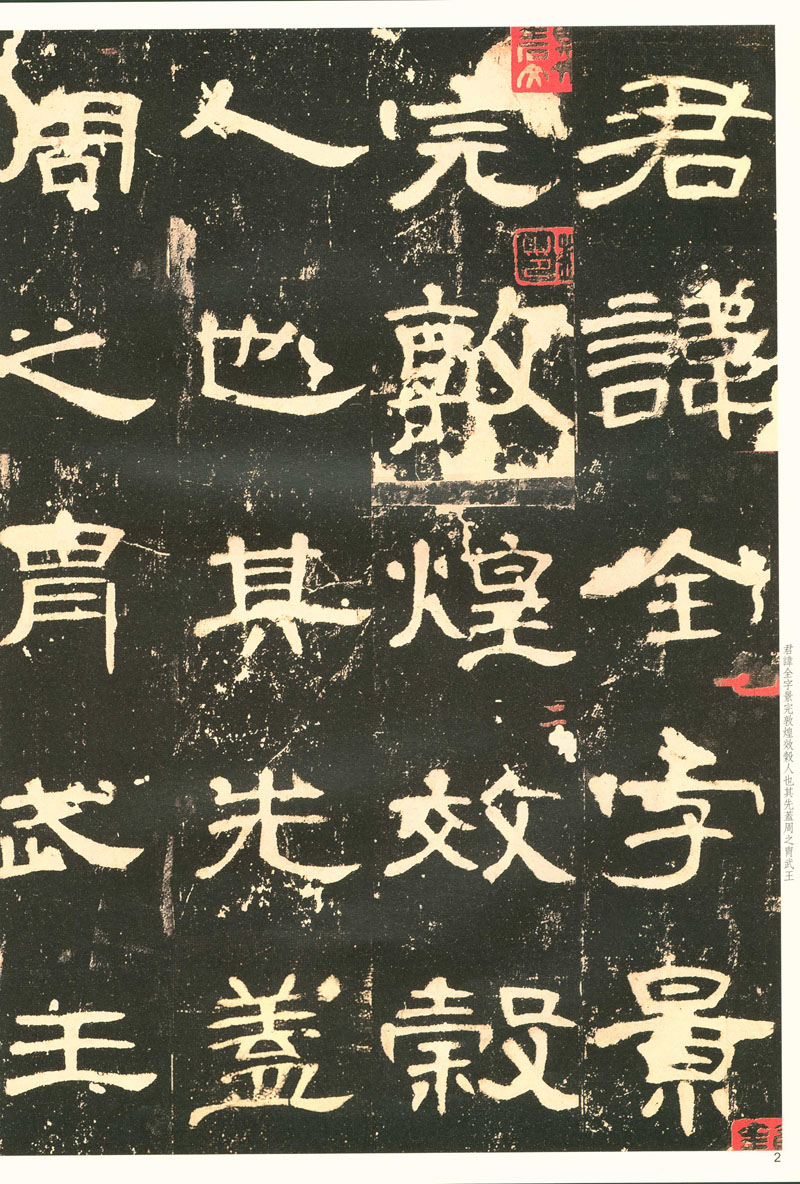 君諱全字景
完敦煌效穀
人也其先蓋
周之胄武王
君諱全字景完敦煌效穀人也其先蓋周之胄武王
2